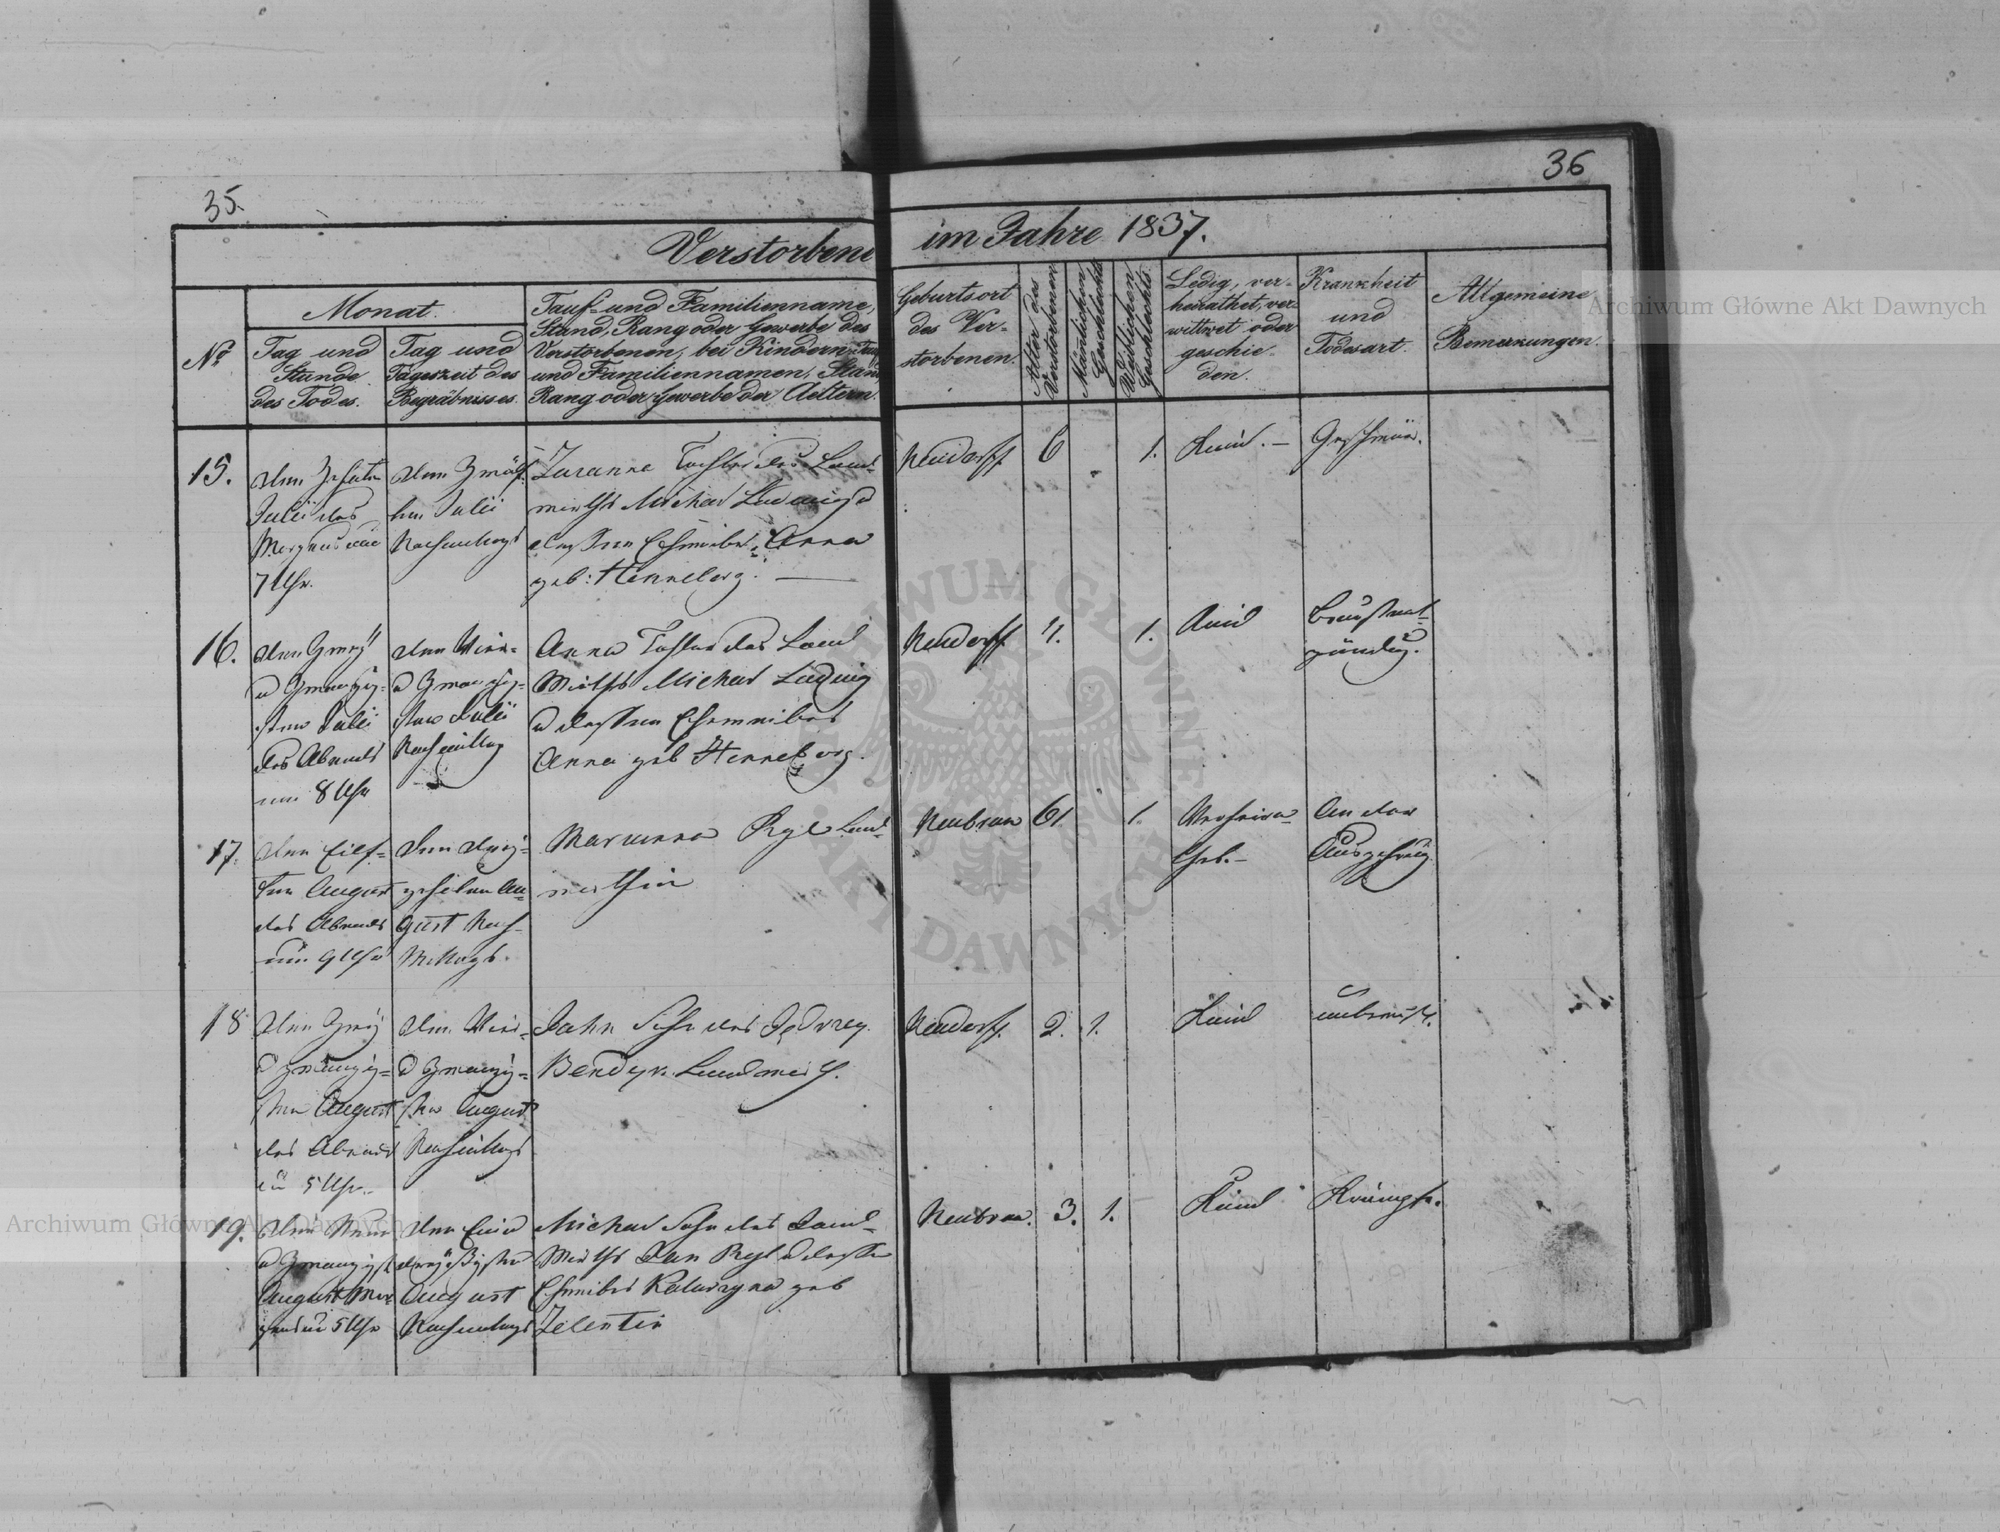 35.
36
Verstorbene im Jahre 1837.
No
Monat.
Tag und
Stunde
des Todes.
Tag und
Tageszeit des
Begräbnisses.
Tauf- und Familienname,
Stand, Rang oder Gewerbe des
Verstorbenen, bei Kindern Tauf
und Familiennamen, Stand
Rang oder Gewerbe der Aeltern.
Geburtsort
des Ver-
storbenen.
Alter des
Verstorbenen
Männlichen
Geschlechts
Weiblichen
Geschlechts.
Ledig, ver-
heirathet, ver-
wittwet oder
geschie-
den.
Krankheit
und
Todesart.
Allgemeine
Bemerkungen.
15.
den
Julii des
Morgens um
7 Uhr.
den Zwölf-
ten Julii
Nachmittags
Zuzanna Tochter des Land
wirths Michael Ludwig u
dessen Ehweibes Anna
geb: Henneberg.
Neudorff
6
1.
Kind. –
Geschwür.
16.
den Zwey
u Zwanzig-
sten Julii
des Abends
um 8 Uhr
den Vier-
u Zwanzig-
sten Julii
Nachmittag
Anna Tochter des Land
Wirths Michael Ludwig
u dessen Ehweibes
Anna geb Henneberg.
Neudorff
4.
1.
Kind
17.
den Eilf-
ten August
des Abends
um 9 Uhr
den drey-
zehnten Au-
gust Nach-
Mittags.
Marianna Ryl Land-
wirthin
Neubrun
61.
1.
Verheira-
thet. –
An der
Auszehrung
18
den Zwey
u Zwanzig-
sten August
des Abends
um 5 Uhr.
den Vier-
u Zwanzig-
sten August
Nachmittags
Jahn Sohn des Jędrzey
Bendyk Landwirth.
Neudorff.
2.
1.
Kind
19.
den Neun
u Zwanzigst
August Mor-
gens um 5 Uhr
den Ein u
dreyßigsten
August
Nachmittags
Michael Sohn des Land-
Wirths Jan Ryl u dessen
Ehweibes Katarzyna geb
Zelentin
Neubrun.
3.
1.
Kind
Krämpfe.
Archiwum Główne Akt Dawnych
Archiwum Główne Akt Dawnych
ARCHIWUM GŁÓWNE AKT DAWNYCH